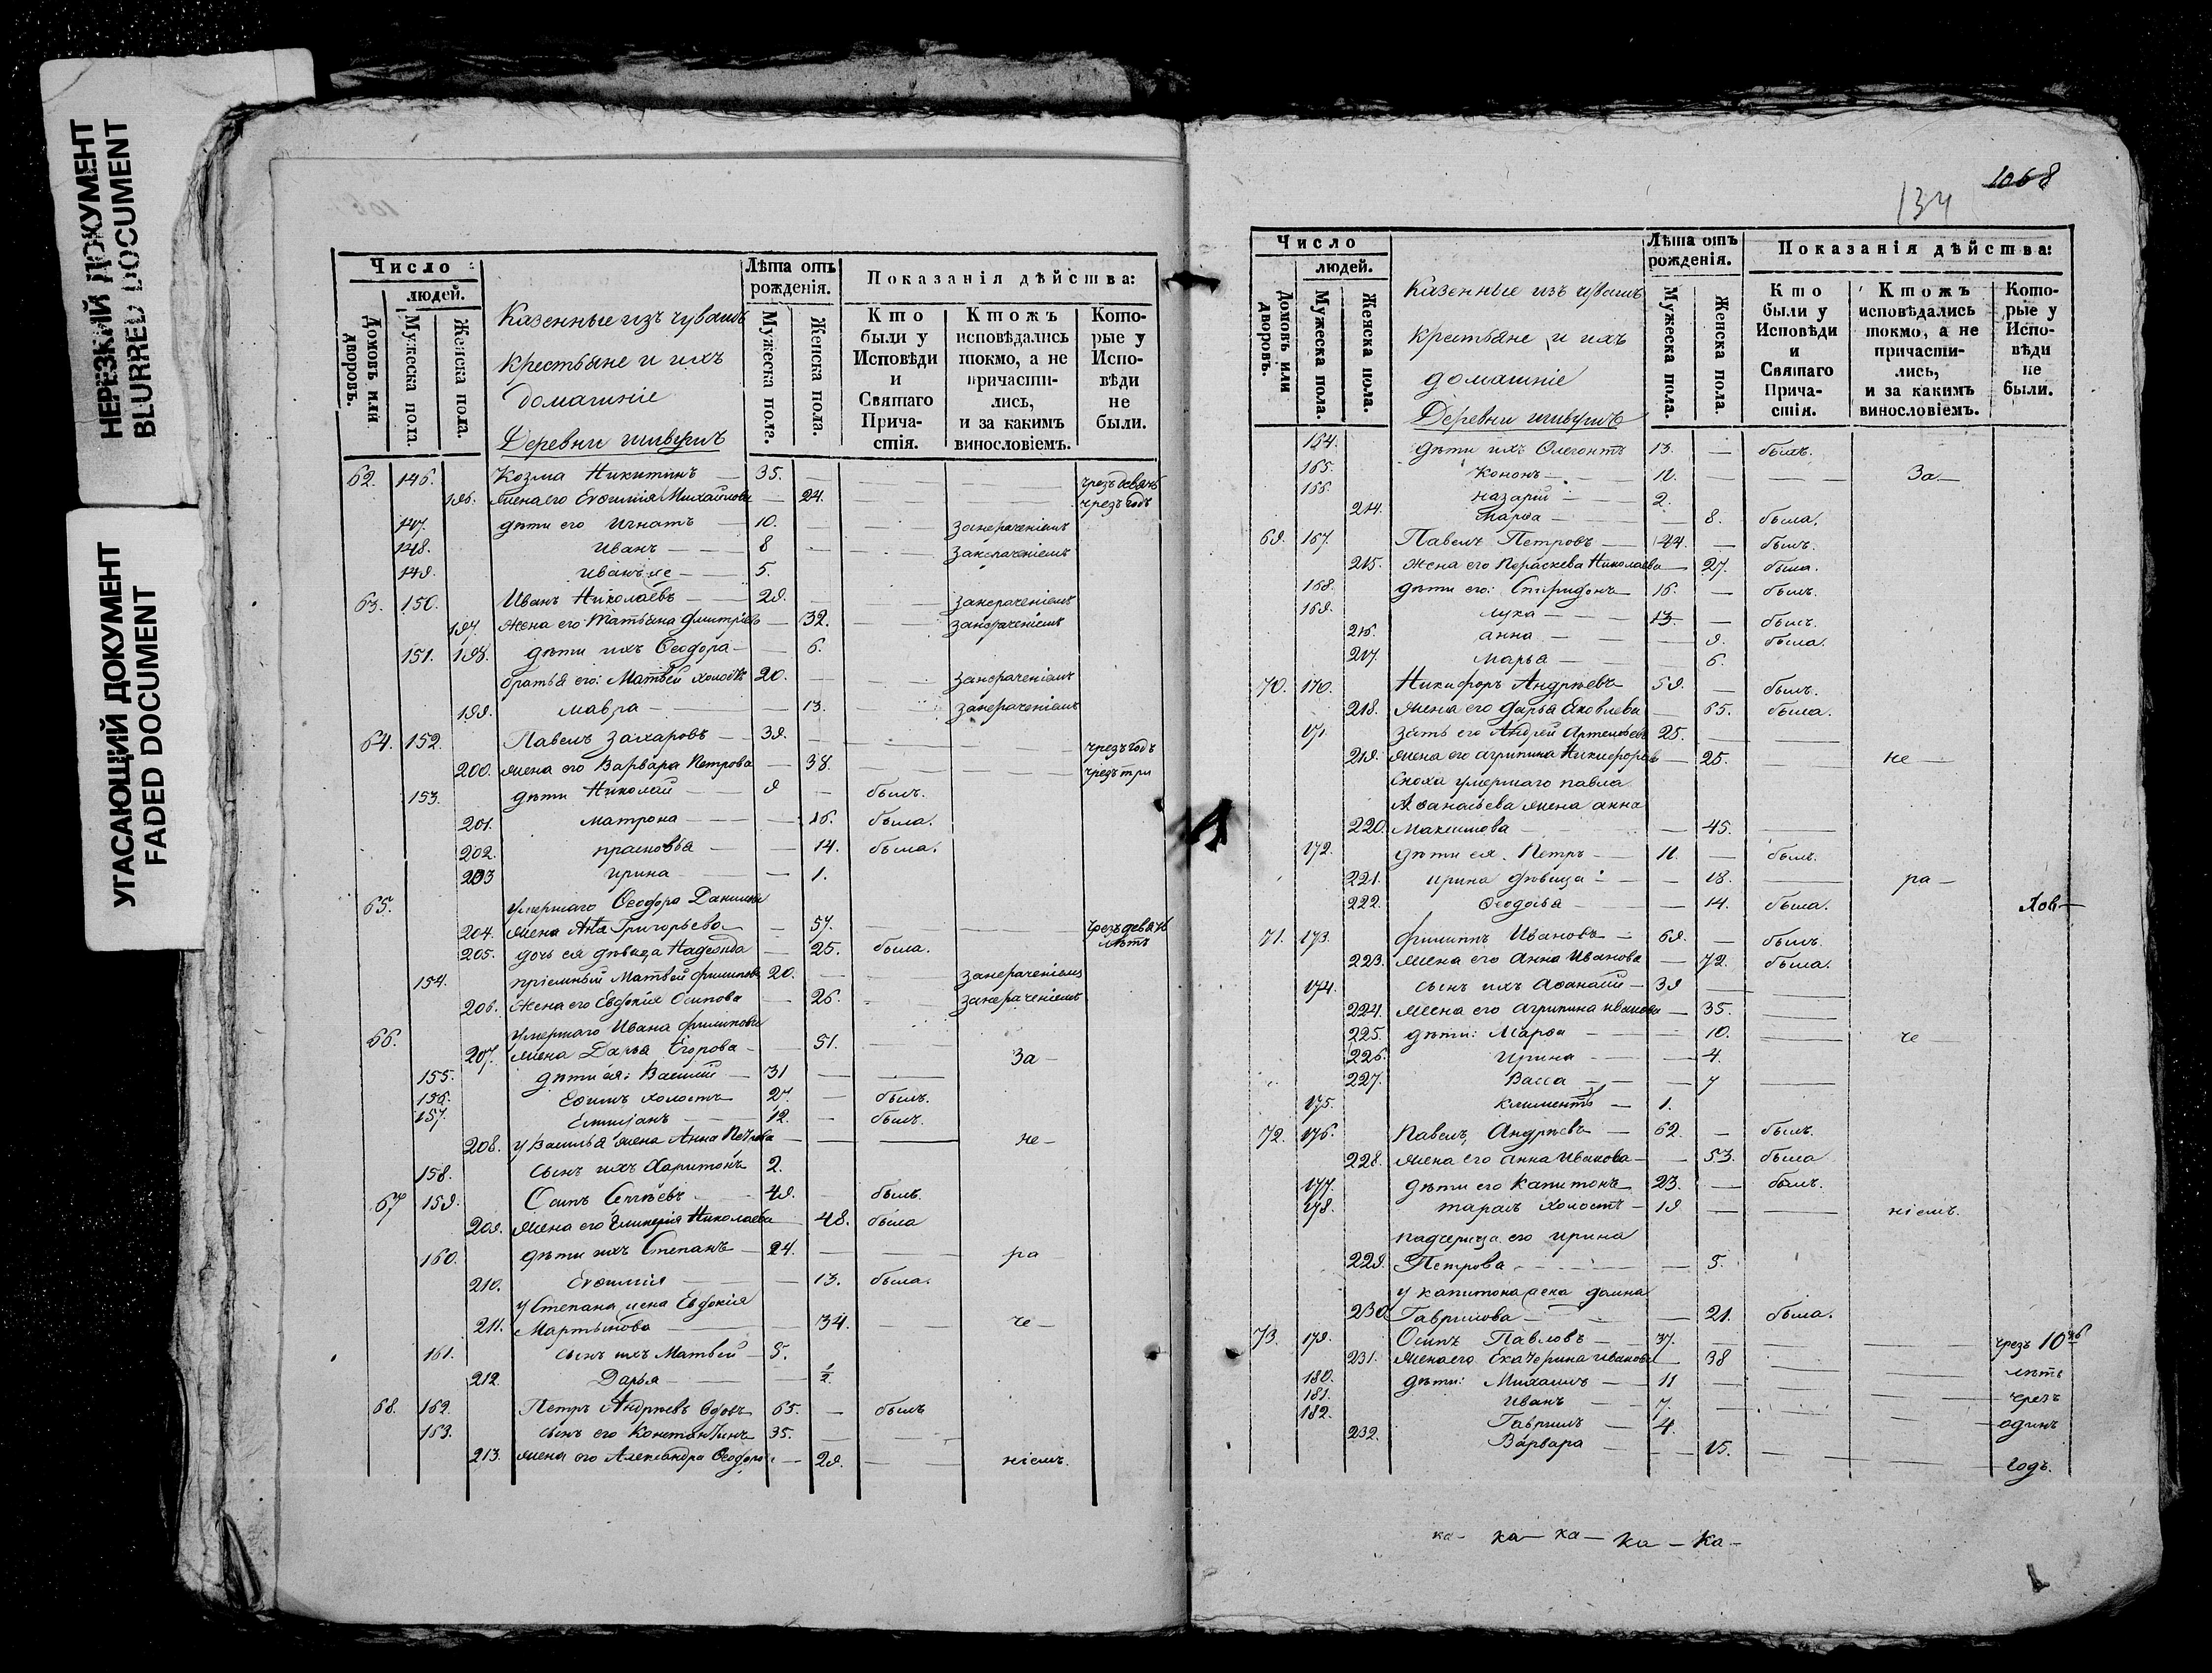 НЕРЕЗКИЙ ДОКУМЕНТ
BLURRED DOCUMENT
УГАСАЮЩИЙ ДОКУМЕНТ
FADED DOCUMENT
Число
людей.
Домовъ или дворовъ.
Мужеска пола.
Женска пола.
Казенные изъ чувашъ
крестьяне и ихъ
домашніе
Деревни
Лѣта отъ рожденія.
Мужеска пола.
Женска пола.
Показанія дѣйства:
Кто были у Исповѣди и Святаго Прича-стія.
Ктожъ исповѣдались токмо, а не причасти-лись, и за какимъ винословіемъ.
Кото-рые у Испо-вѣди не были.
62. 146. Козма Никитинъ 35.
196. жена его Евѳимія Михайлова 24. чрезъ годъ
147. дѣти его Игнатъ 10. занераченіемъ
148. Иванъ 8 занераченіемъ
149. Иванъ же 5.
63. 150. Иванъ Николаевъ 29. занераченіемъ
197. жена его Татьяна Дмитріева 32. занераченіемъ
151. 198. дѣти ихъ Ѳеодора 6.
братья его: Матвей холостъ 20. занераченіемъ
199. Мавра 13. занераченіемъ
64. 152. Павелъ Захаровъ 39. чрезъ годъ
200. жена его Варвара Петрова 38. чрезъ три
153. дѣти Николай 9 былъ.
201. Матрона 16. была.
202. Прасковья 14. была.
203 Ирина 1.
65. умершаго Ѳеодора Данилова
204. жена Анна Григорьева 57. чрезъ девять лѣтъ
205. дочь ея дѣвица Надежда 25. была.
154. пріемный Матвей Филиповъ 20. занераченіемъ
206. жена его Евдокія Осипова 26. занераченіемъ
66. умершаго Ивана Филипова
207. жена Дарья Егорова 51. За-
155. дѣти ея: Василій 31
156. Еѳимъ холостъ 27. былъ.
157. Емиліанъ 12. былъ.
208. у Василья жена Анна Петрова не-
158. сынъ ихъ Харитонъ 2.
67 159. Осипъ Сергѣевъ 49. былъ.
209. жена его Гликерія Николаева 48. была
160. дѣти ихъ Степанъ 24. ра
210. Евѳимія 13. была.
у Степана жена Евдокія
211. Мартынова 34. че-
161. сынъ ихъ Матвей 5.
212. Дарья ½
68. 162. Петръ Андреевъ вдовъ 65. былъ
163. сынъ его Константинъ 35.
213. жена его Александра Ѳеодорова 29. ніемъ.
1068
134
Число
людей.
Домовъ или дворовъ.
Мужеска пола.
Женска пола.
Казенные изъ чувашъ
крестьяне и ихъ
домашніе
Деревни
Лѣта отъ рожденія.
Мужеска пола.
Женска пола.
Показанія дѣйства:
Кто были у Исповѣди и Святаго Прича-стія.
Ктожъ исповѣдались токмо, а не причасти-лись, и за какимъ винословіемъ.
Кото-рые у Испо-вѣди не были.
164. дѣти ихъ Олегонтъ 13. былъ.
165. Кононъ 11. За-
166. Назарій 2.
214. Марѳа 8. была.
69. 167. Павелъ Петровъ 44. былъ.
215. жена его Параскева Николаева 27. была.
168. дѣти его: Спиридонъ 16. былъ.
169. Лука 13. былъ.
216. Анна 9. была.
217. Марья 6.
70. 170. Никифоръ Андреевъ 59. былъ.
218. жена его Дарья Яковлева 65. была.
171. Зять его Андрей Артемьевъ 25.
219. жена его Агрипина Никифорова 25. не
сноха умершаго Павла
Аѳанасьева жена Анна
220. Максимова 45.
172. дѣти ея. Петръ 11. былъ.
221. Ирина дѣвица 18. ра-
222. Ѳеодосья 14. была.
71. 173. Филиппъ Ивановъ 69. былъ.
223. жена его Анна Иванова 72. была.
174. сынъ ихъ Аѳанасій 39
224. жена его Агрипина Иванова 35.
225. дѣти: Марѳа 10. че
226. Ирина 4.
227. Васса 7
175. Климентъ 1.
72. 176. Павелъ Андреевъ 62. былъ.
228. жена его Анна Иванова 53. была
177. дѣти его Капитонъ 23. былъ.
178. Тарасъ холостъ 19. ніемъ.
падчерица его Ирина
229. Петрова 5.
у Капитона жена Домна
230 Гаврилова 21. была.
73. 179. Осипъ Павловъ 37. чрезъ 10
231. жена его Екатерина Иванова 38 лѣтъ
180. дѣти: Михаилъ 11
181. Иванъ 7. чрезъ
182. Гавриилъ 4. одинъ
232. Варвара 15. годъ.
ка- ка- ка- ка- ка-